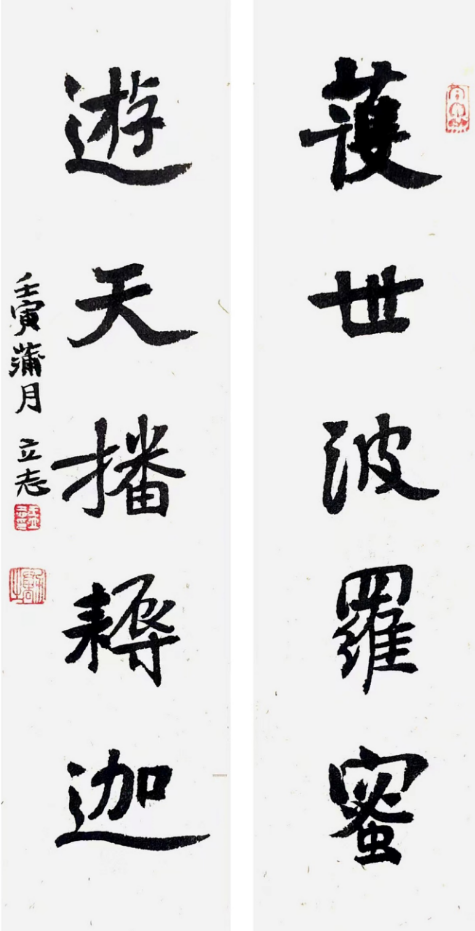 䕶世波羅蜜
遊天播耨迦
壬寅蒲月 立志